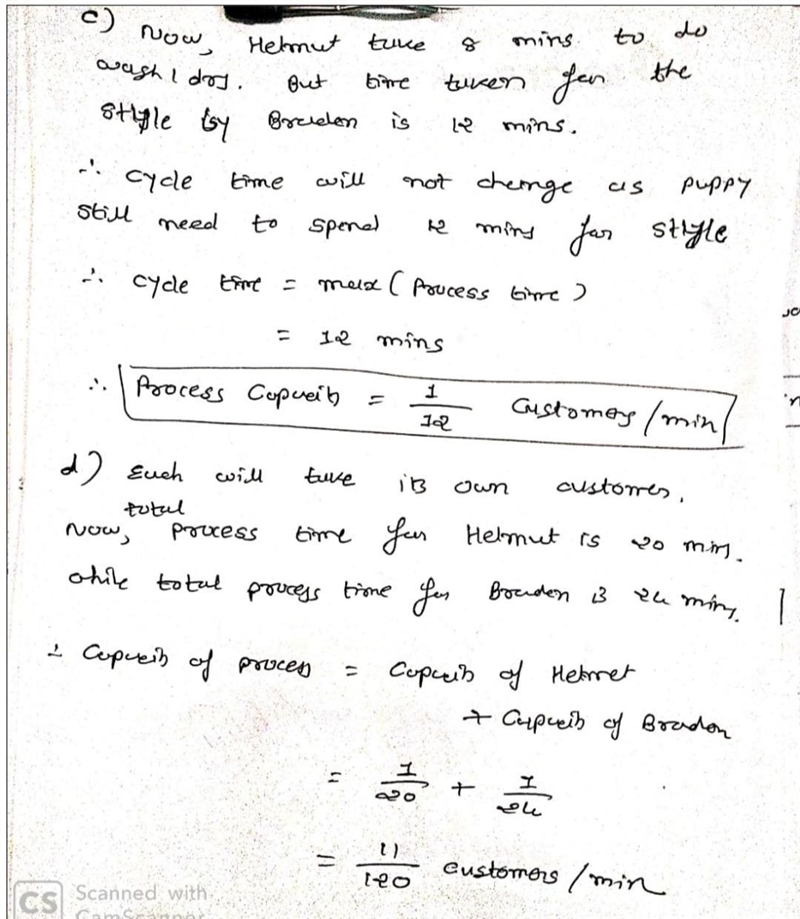 c) Now, Helmut take 8 mins to do
wash / dry. But time taken for the
style by Braden is 12 mins.
∴ cycle time will not change as puppy
still need to spend 12 mins for style
∴ cycle time = max ( Process time )
= 12 mins
∴ Process Capacity = 1/12 Customers / min
d) Each will take its own customer.
Now, total process time for Helmut is 20 min.
while total process time for Braden is 24 mins.
∴ Capacity of process = Capacity of Helmet
+ Capacity of Bradon
= 1/20 + 1/24
= 11/120 customers / min
CS Scanned with
CamScanner